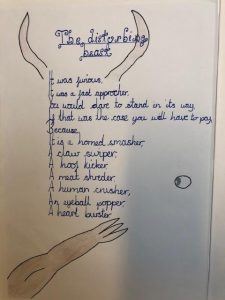 The disturbing
beast
It was furious,
It was a fast approcher.
You would dare to stand in its way,
If that was the case you will have to pay,
Because,
It is a horned smasher,
A claw swiper,
A hoof kicker
A meat shreder
A human crusher,
An eyeball popper
A heart buster